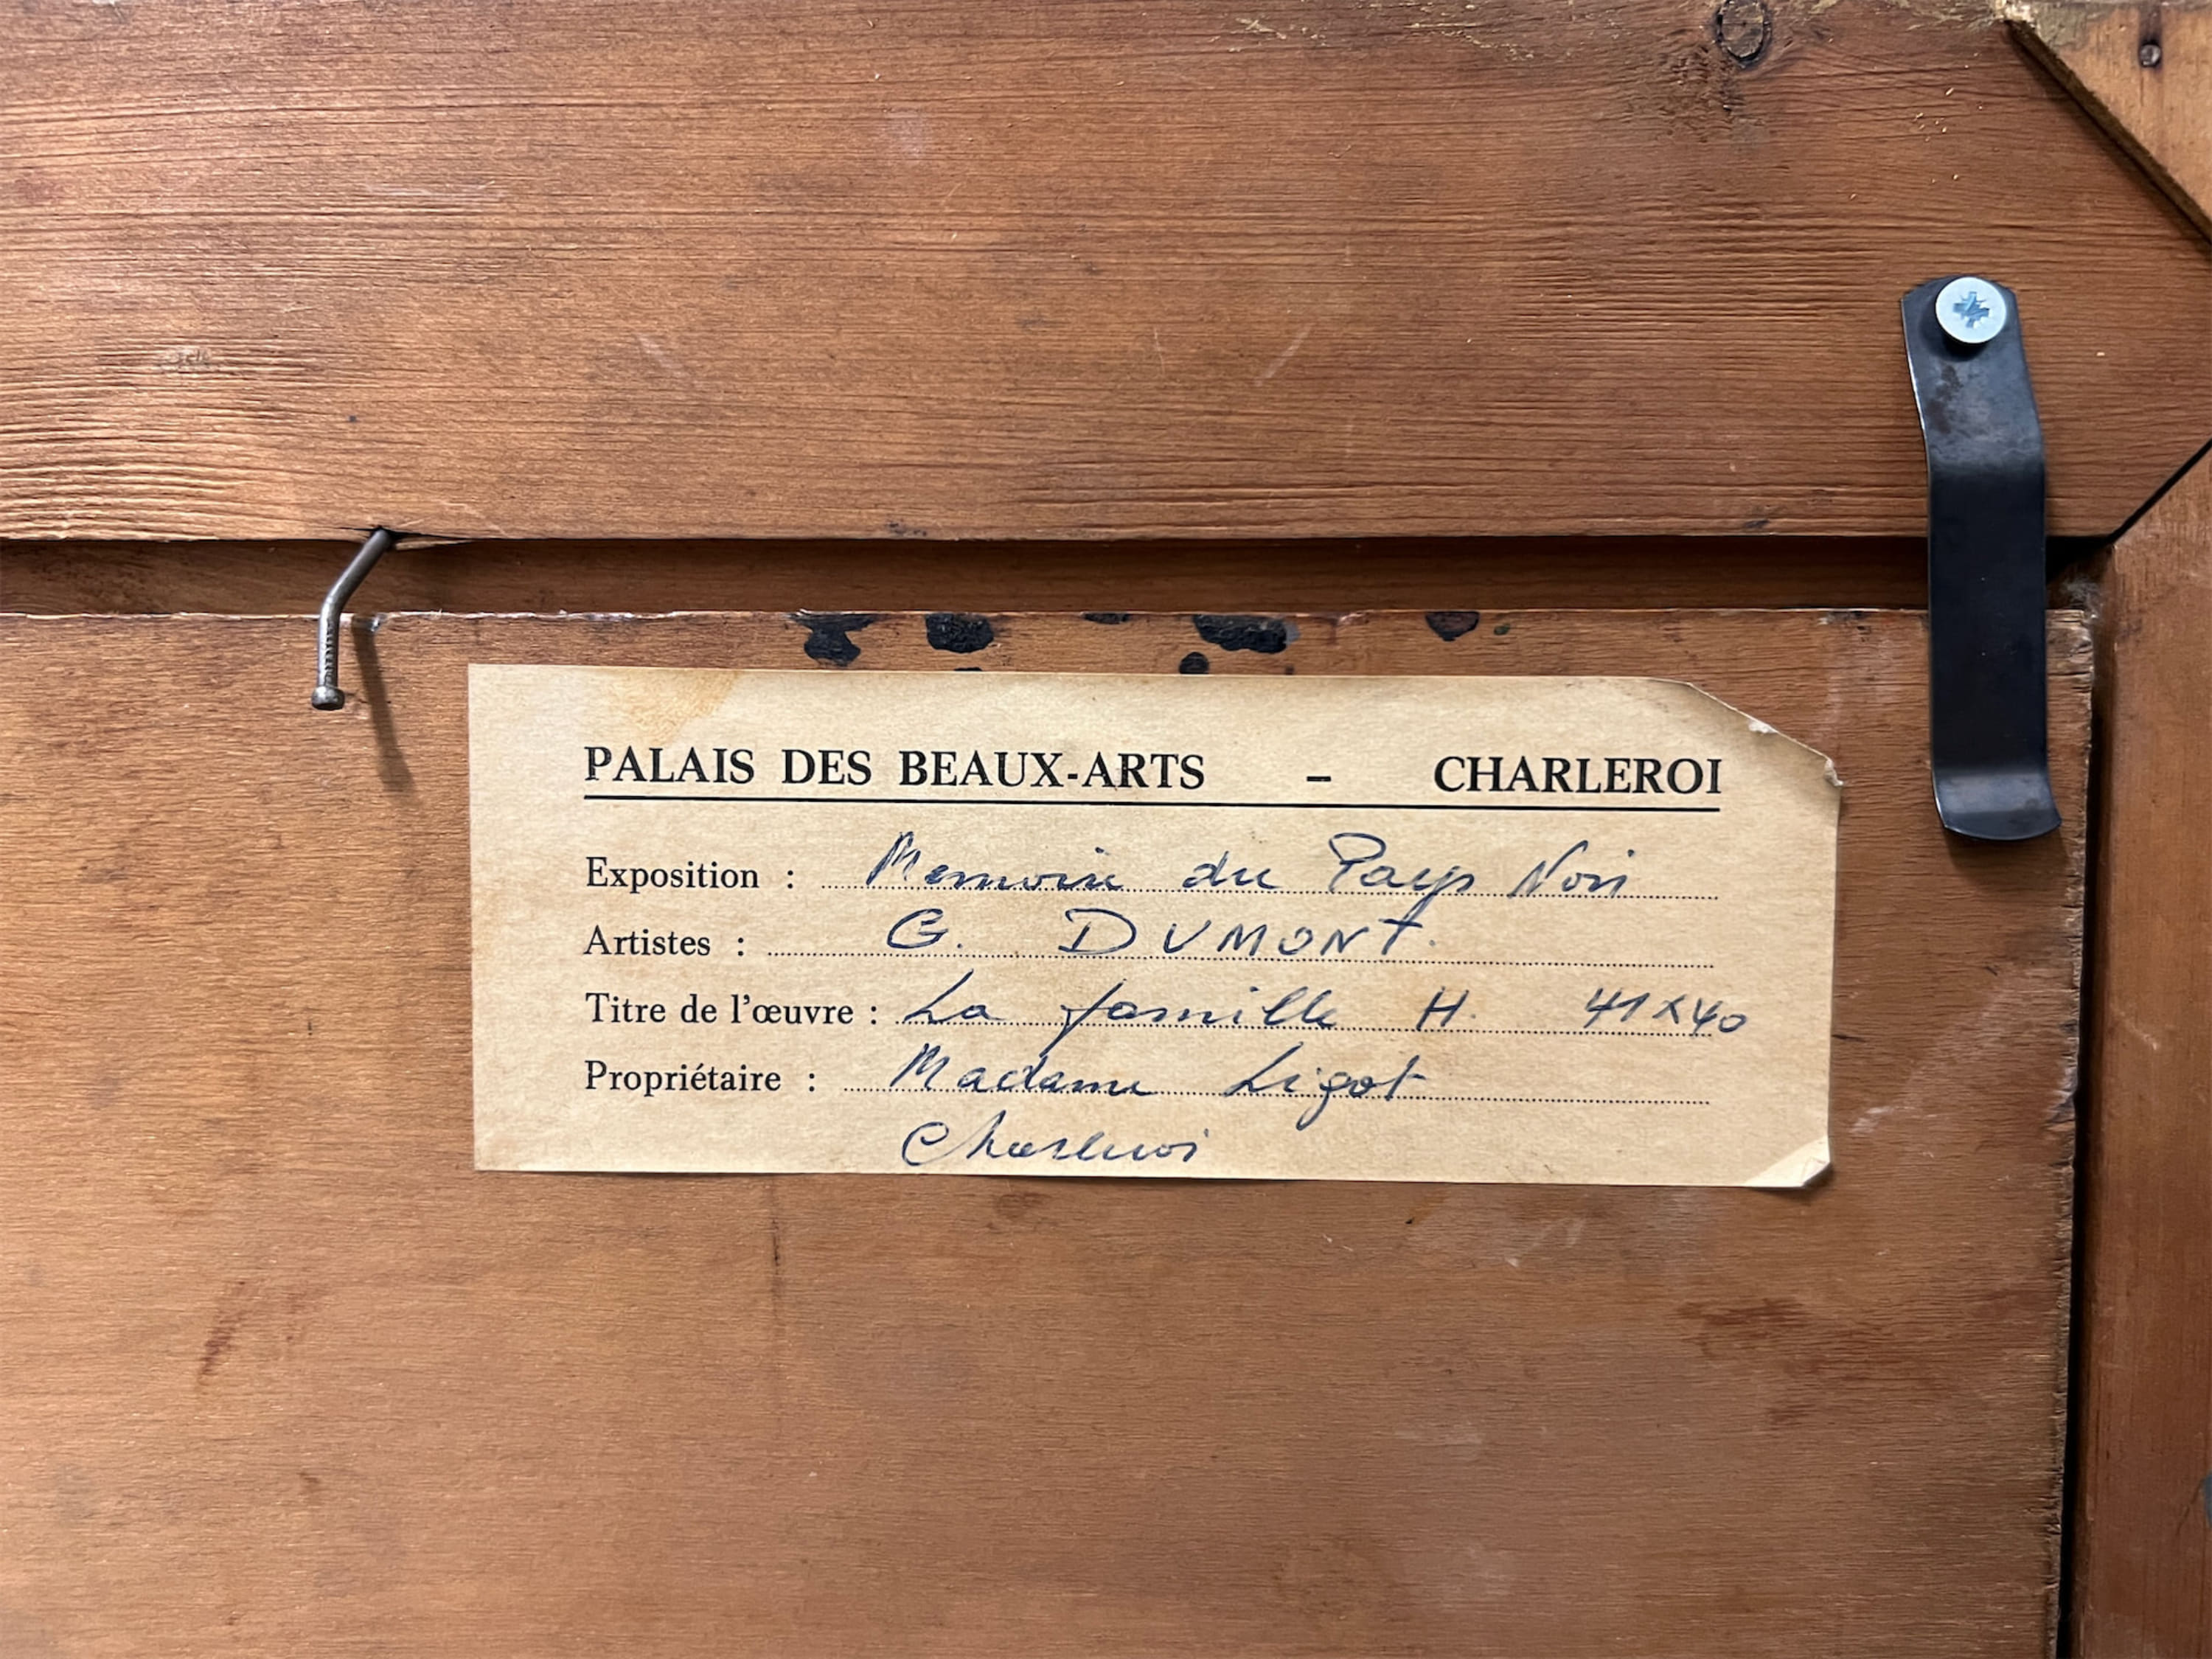 PALAIS DES BEAUX-ARTS – CHARLEROI
Exposition : Memoire du Pays Noir
Artistes : G. DUMONT.
Titre de l'œuvre : La famille H. 41x40
Propriétaire : Madame Ligot
Charleroi